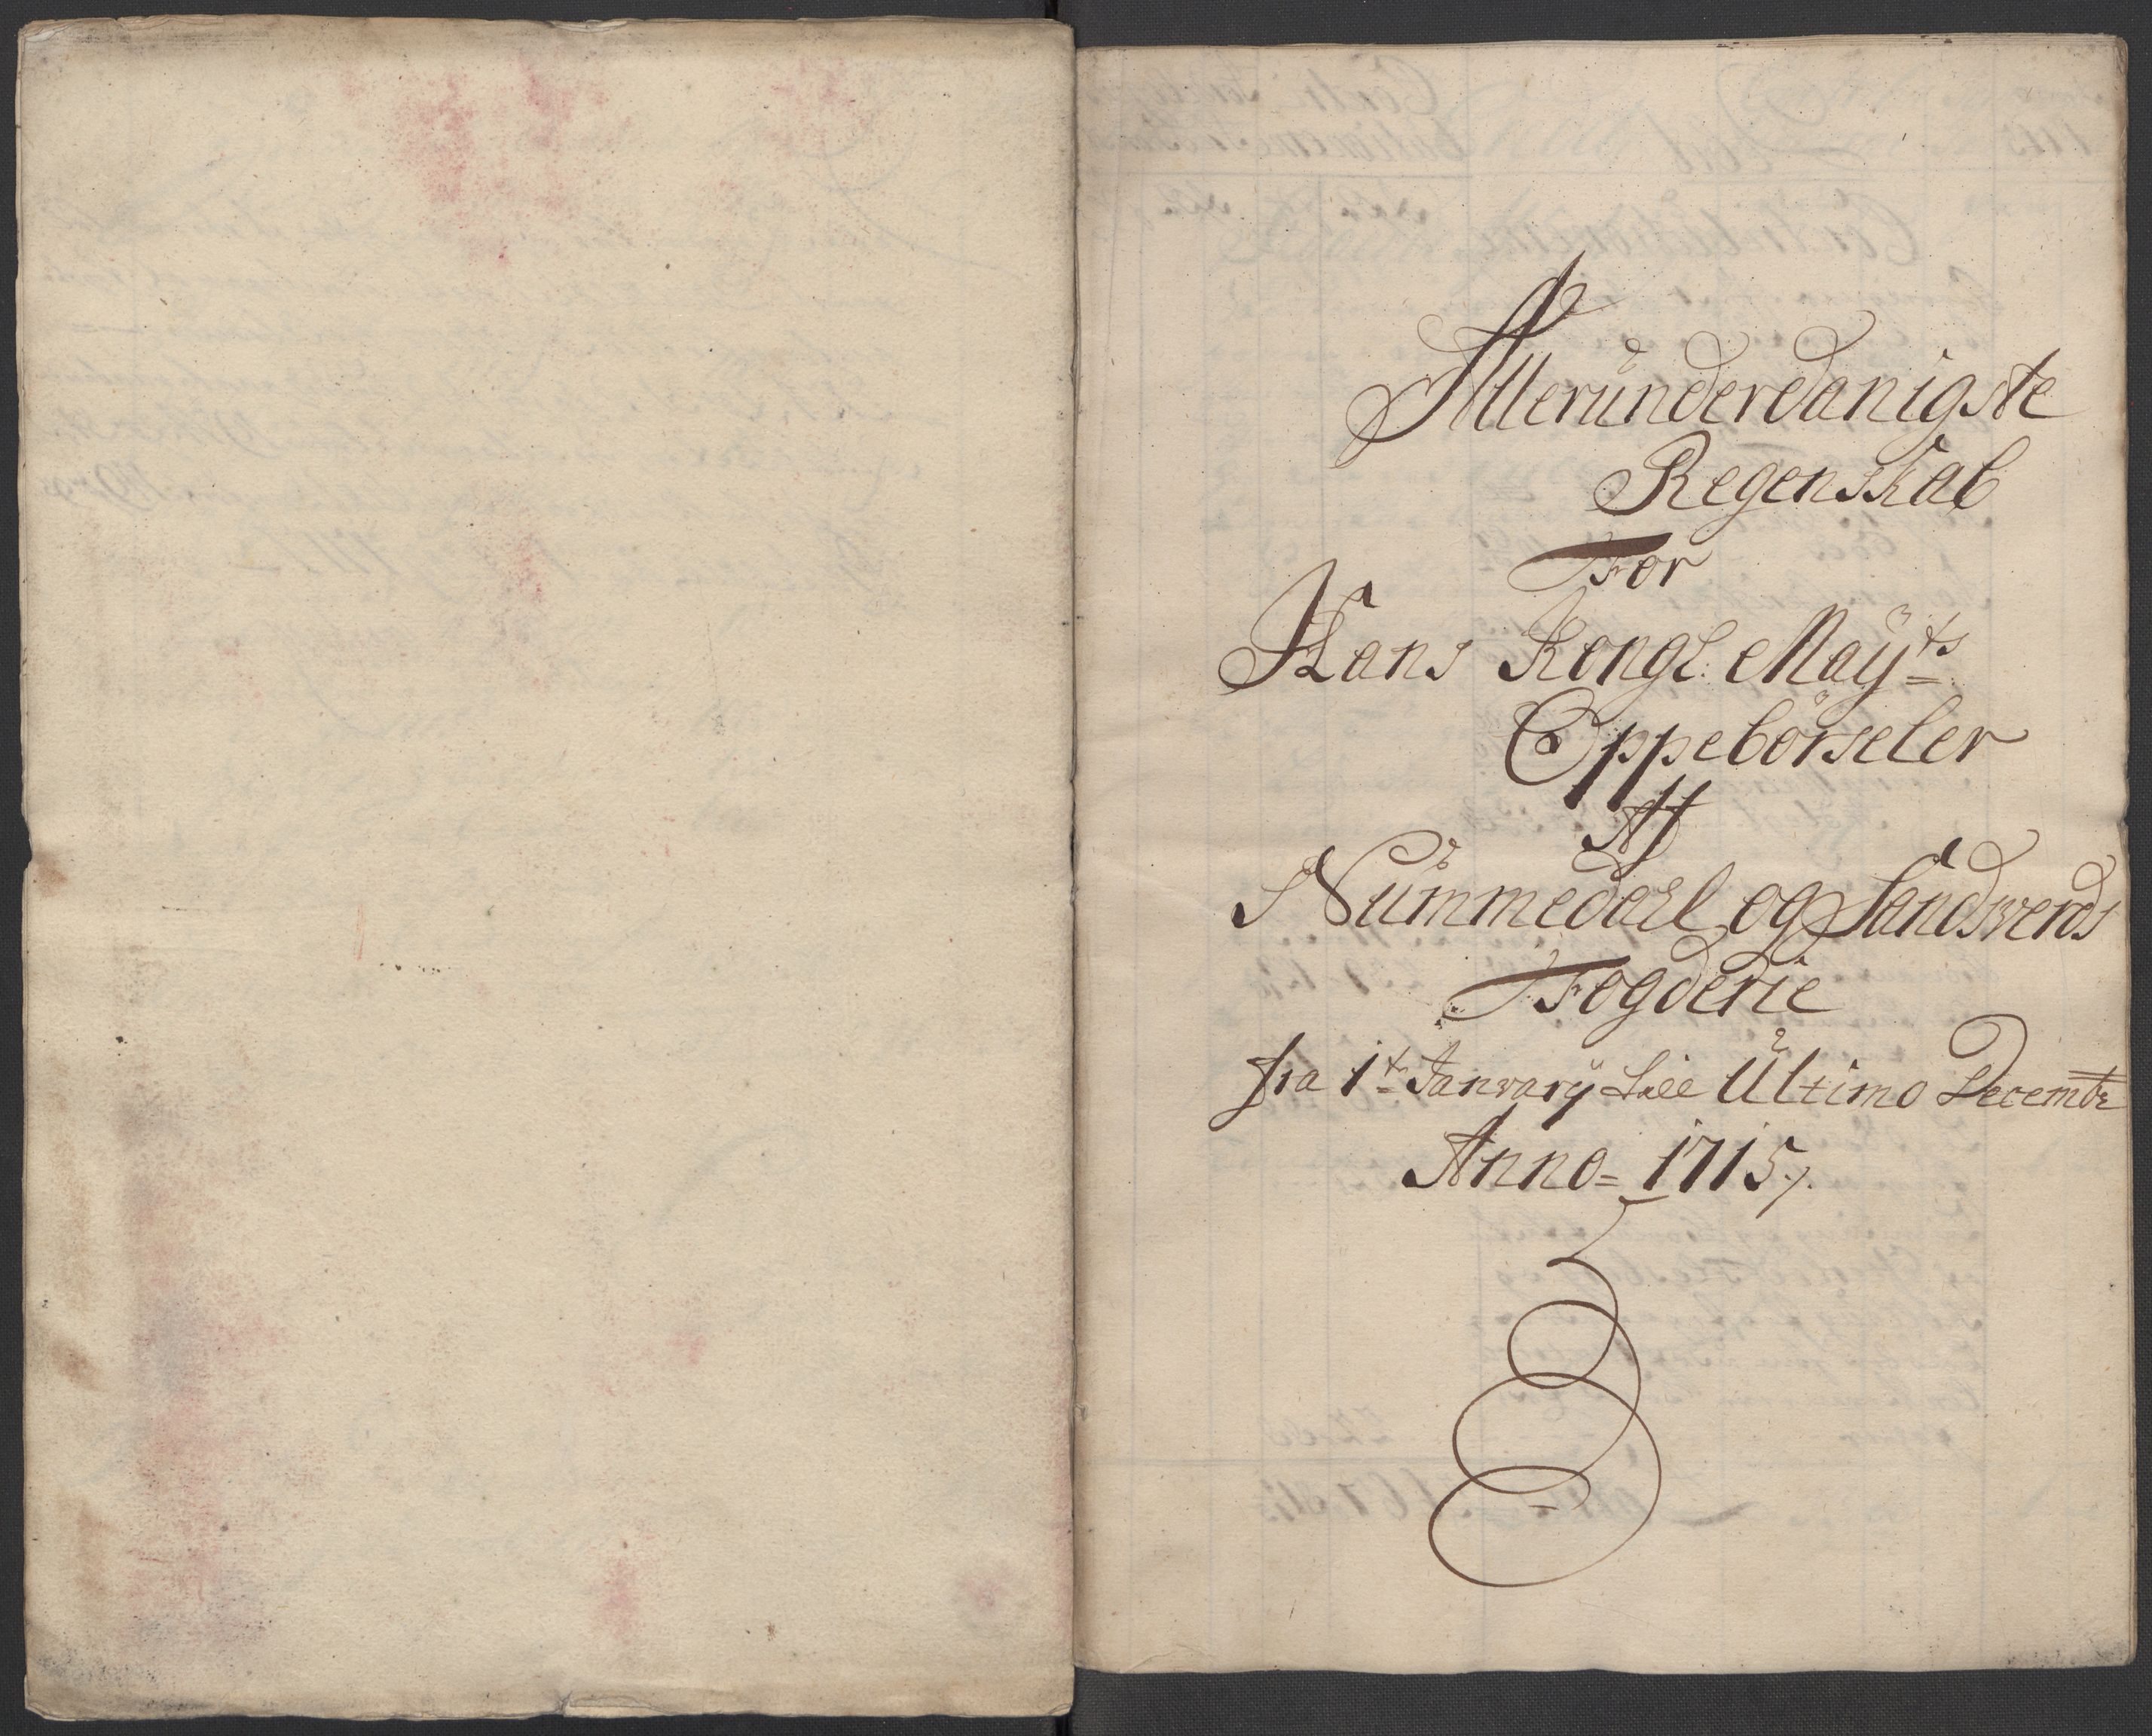 Alleründerdanigste
Regenskab
For
Hans Kongl: Maÿts
Oppebörseler
Af
Nümmedahl og Sandswerds
Fogderie
fra 1te Janvarÿ till Ültimo Decembr
Anno = 1715